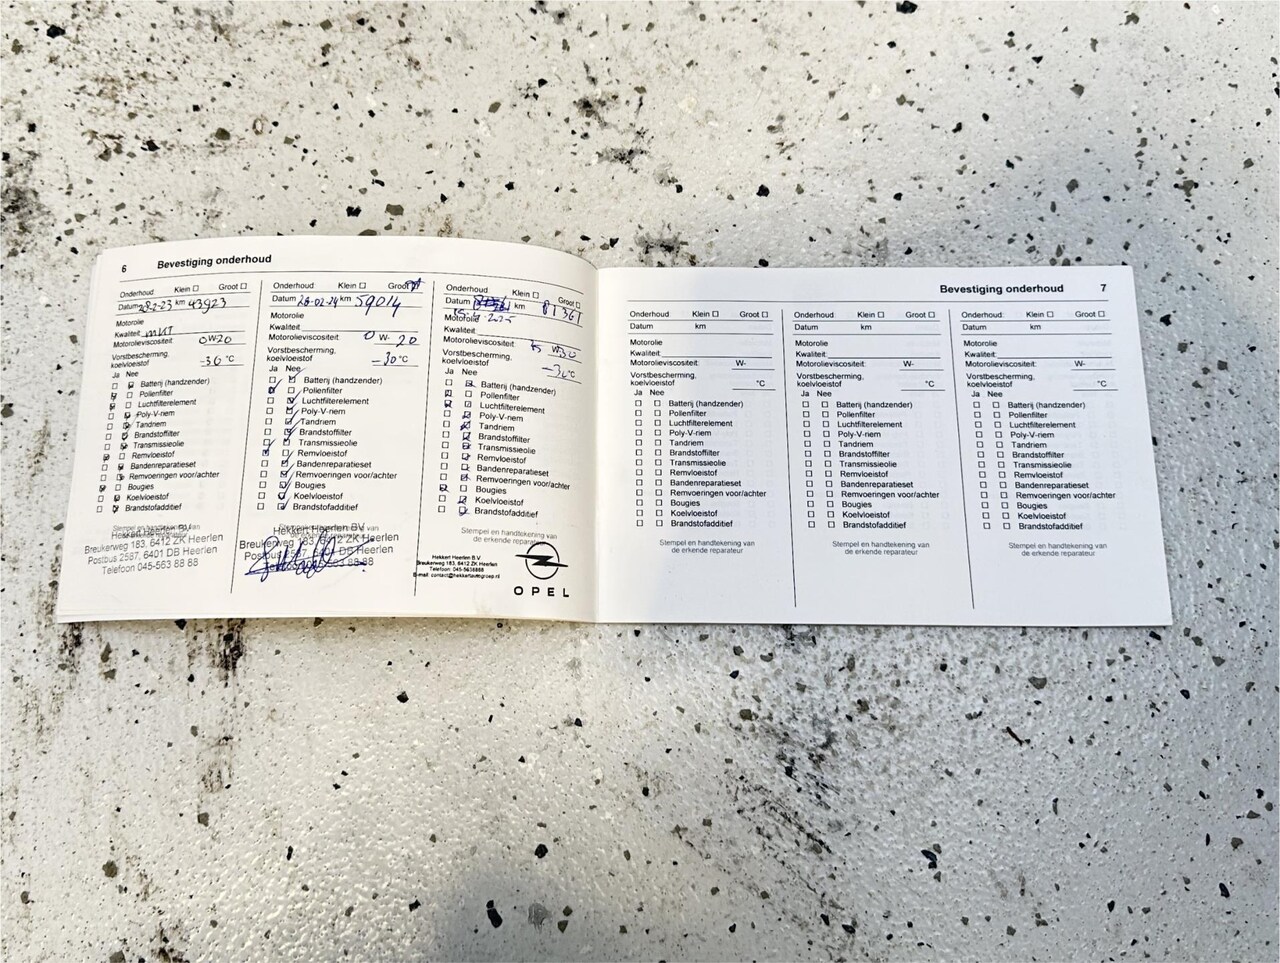 6 Bevestiging onderhoud
Onderhoud: Klein ☐ Groot ☐
Datum 28-2-23 km 43923
Motorolie
Kwaliteit
Motorolieviscositeit 0W20
Vorstbescherming,
koelvloeistof -30 °C
Ja Nee
Batterij (handzender)
Pollenfilter
Luchtfilterelement
Poly-V-riem
Tandriem
Brandstoffilter
Transmissieolie
Remvloeistof
Bandenreparatieset
Remvoeringen voor/achter
Bougies
Koelvloeistof
Brandstofadditief
Stempel en handtekening van
Hekkert Heerlen BV
Breukerweg 183, 6412 ZK Heerlen
Postbus 2597, 6401 DB Heerlen
Telefoon 045-563 88 88
Onderhoud: Klein ☐ Groot
Datum 28-02-24 km 59014
Motorolie
Kwaliteit
Motorolieviscositeit 0 W- 20
Vorstbescherming,
koelvloeistof -30 °C
Ja Nee
Batterij (handzender)
Pollenfilter
Luchtfilterelement
Poly-V-riem
Tandriem
Brandstoffilter
Transmissieolie
Remvloeistof
Bandenreparatieset
Remvoeringen voor/achter
Bougies
Koelvloeistof
Brandstofadditief
Hekkert Heerlen BV
Breukerweg 183, 6412 ZK Heerlen
Postbus 2597, 6401 DB Heerlen
Onderhoud: Klein ☐ Groot ☐
Datum km 81361
Motorolie
Kwaliteit
Motorolieviscositeit W-30
Vorstbescherming,
koelvloeistof -30 °C
Ja Nee
Batterij (handzender)
Pollenfilter
Luchtfilterelement
Poly-V-riem
Tandriem
Brandstoffilter
Transmissieolie
Remvloeistof
Bandenreparatieset
Remvoeringen voor/achter
Bougies
Koelvloeistof
Brandstofadditief
Stempel en handtekening van
de erkende reparateur
Hekkert Heerlen B.V
Breukerweg 183, 6412 ZK Heerlen
Telefoon: 045-5638888
E-mail: contact@hekkertautogroep.nl
OPEL
Bevestiging onderhoud 7
Onderhoud: Klein ☐ Groot ☐
Datum km
Motorolie
Kwaliteit
Motorolieviscositeit W-
Vorstbescherming,
koelvloeistof °C
Ja Nee
☐ ☐ Batterij (handzender)
☐ ☐ Pollenfilter
☐ ☐ Luchtfilterelement
☐ ☐ Poly-V-riem
☐ ☐ Tandriem
☐ ☐ Brandstoffilter
☐ ☐ Transmissieolie
☐ ☐ Remvloeistof
☐ ☐ Bandenreparatieset
☐ ☐ Remvoeringen voor/achter
☐ ☐ Bougies
☐ ☐ Koelvloeistof
☐ ☐ Brandstofadditief
Stempel en handtekening van
de erkende reparateur
Onderhoud: Klein ☐ Groot ☐
Datum km
Motorolie
Kwaliteit
Motorolieviscositeit: W-
Vorstbescherming,
koelvloeistof °C
Ja Nee
☐ ☐ Batterij (handzender)
☐ ☐ Pollenfilter
☐ ☐ Luchtfilterelement
☐ ☐ Poly-V-riem
☐ ☐ Tandriem
☐ ☐ Brandstoffilter
☐ ☐ Transmissieolie
☐ ☐ Remvloeistof
☐ ☐ Bandenreparatieset
☐ ☐ Remvoeringen voor/achter
☐ ☐ Bougies
☐ ☐ Koelvloeistof
☐ ☐ Brandstofadditief
Stempel en handtekening van
de erkende reparateur
Onderhoud: Klein ☐ Groot ☐
Datum km
Motorolie
Kwaliteit
Motorolieviscositeit: W-
Vorstbescherming,
koelvloeistof °C
Ja Nee
☐ ☐ Batterij (handzender)
☐ ☐ Pollenfilter
☐ ☐ Luchtfilterelement
☐ ☐ Poly-V-riem
☐ ☐ Tandriem
☐ ☐ Brandstoffilter
☐ ☐ Transmissieolie
☐ ☐ Remvloeistof
☐ ☐ Bandenreparatieset
☐ ☐ Remvoeringen voor/achter
☐ ☐ Bougies
☐ ☐ Koelvloeistof
☐ ☐ Brandstofadditief
Stempel en handtekening van
de erkende reparateur